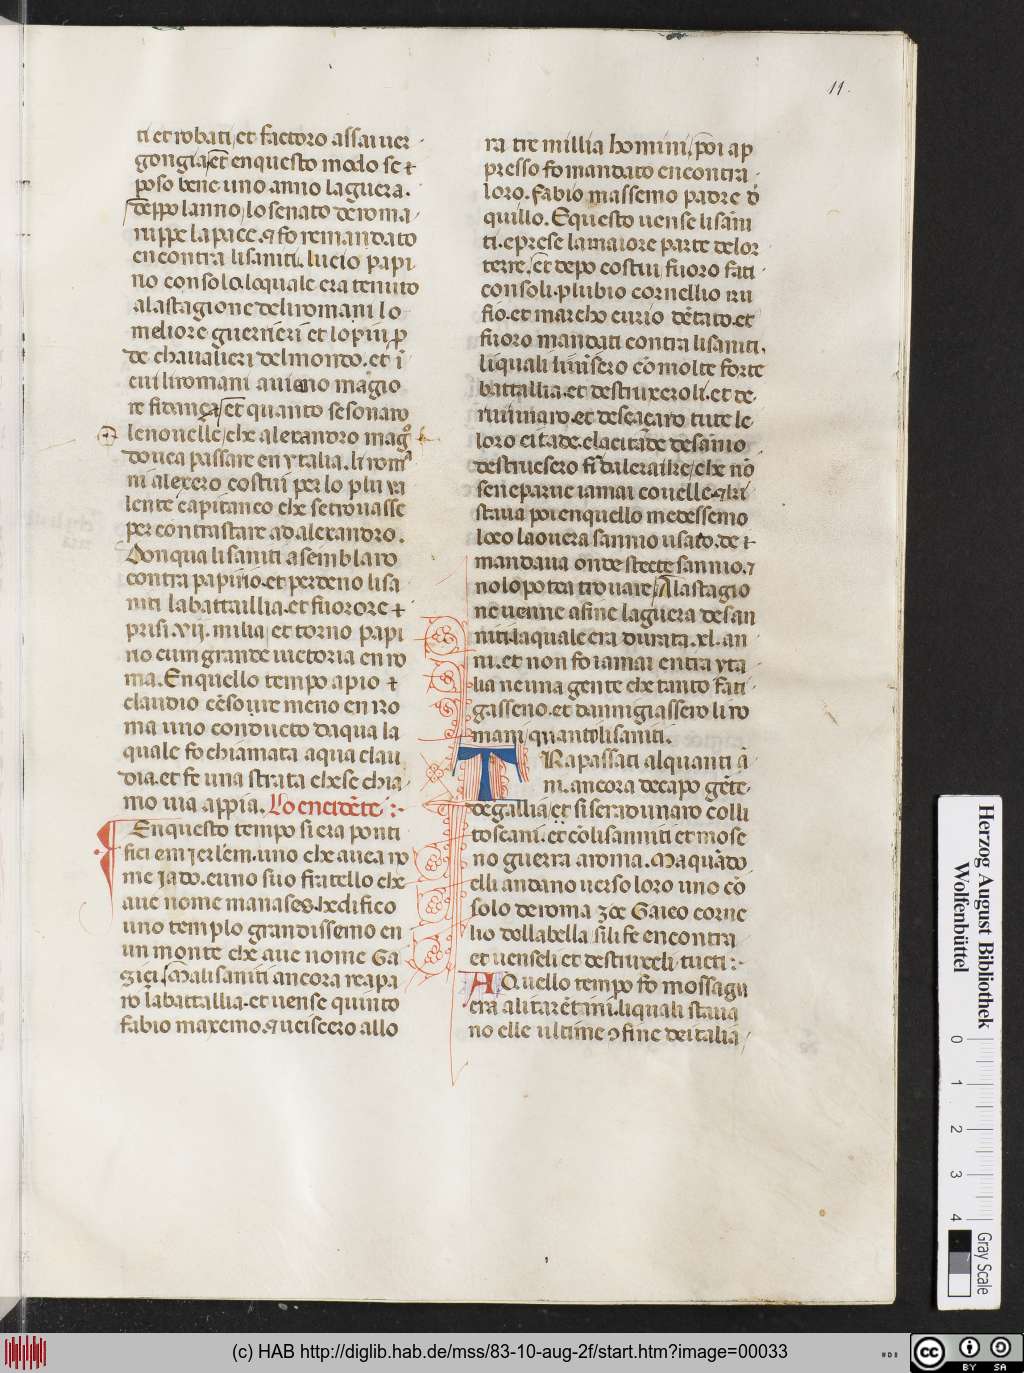 11.
ti et robati, et factoro assai uer
gongia, et enquesto modo se
poso bene uno anno la guera.
deppo lanno, lo senato de roma
ruppe la pace. fo remandato
en contra li saniti. lucio papi
no consolo. loquale era tenuto
ala stagione deli romani lo
meliore guerrieri et lo piu p
de chaualieri del mondo. et i
cui li romani auieno magio
re fidança, et quanto se sonaro
le nouelle, che alexandro mag
douea passare en ytalia. li rom
ni alexero costui per lo plu ua
lente capitaneo che se trouasse
per contrastare ad alexandro.
Donqua li saniti asemblaro
contra papirio. et perdeno li sa
niti la battaillia. et fuorore
prisi .xij. milia, et torno papi
no cum grande uictoria en ro
ma. En quello tempo apio
claudio cēsoure meno en ro
ma uno conducto daqua la
quale fo chiamata aqua clau
dia. et fe una strata che se chia
mo uia appia. Lo encidēte :-
Enquesto tempo si era ponti
fici em ierl'em. uno che auea no
me jado. e uno suo fratello che
aue nome manases. hedifico
uno templo grandissemo en
un monte che aue nome Ga
gici. Ma li saniti ancora reapa
ro la battallia. et uense quinto
fabio maxemo. ucisero allo
ra tre millia homini, poi ap
presso fo mandato encontra
loro. fabio massemo padre d
quillo. E questo uense li sani
ti. e prese la maiore parte de lor
terre. et depo costui fuoro fati
consoli. plubio cornellio ru
fio. et marcho curio dētato. et
fuoro mandati contra li saniti.
li quali uīsero cō molte forte
battallia. et destruxeroli. et de
ruinaro. et descaçaro tute le
loro citade. e la citade de sanio
destruesero fi dale raike, che nō
sen eparue iamai couelle. chi
staua poi en quello medessemo
loco la ouera sannio usato. de
mandaua onde stecte sannio.
no lo potea trouare, Ala stagio
ne uenne afine la guera de san
niti. la quale era durata .xl. an
ni. et non fo iamai entra yta
lia neuna gente che tanto fati
gasseno. et damnigiassero li ro
mani quanto li saniti.
Rapassati alquanti ā
ni. ancora decapo gēte
de gallia, et si seradunaro colli
toscani. et cō li sanniti et mose
no guerra a roma. Ma quādo
elli andano uerso loro uno cō
solo de roma zoe Gaieo corne
lio dollabella si li fe encontra
et uenseli et destruxeli tucti :-
A Quello tempo fo mossa gu
era ali tarētini. li quali staua
no elle ultime fine de italia
Herzog August Bibliothek
Wolfenbüttel
0
1
2
3
4
Gray Scale
(c) HAB http://diglib.hab.de/mss/83-10-aug-2f/start.htm?image=00033
cc
BY SA